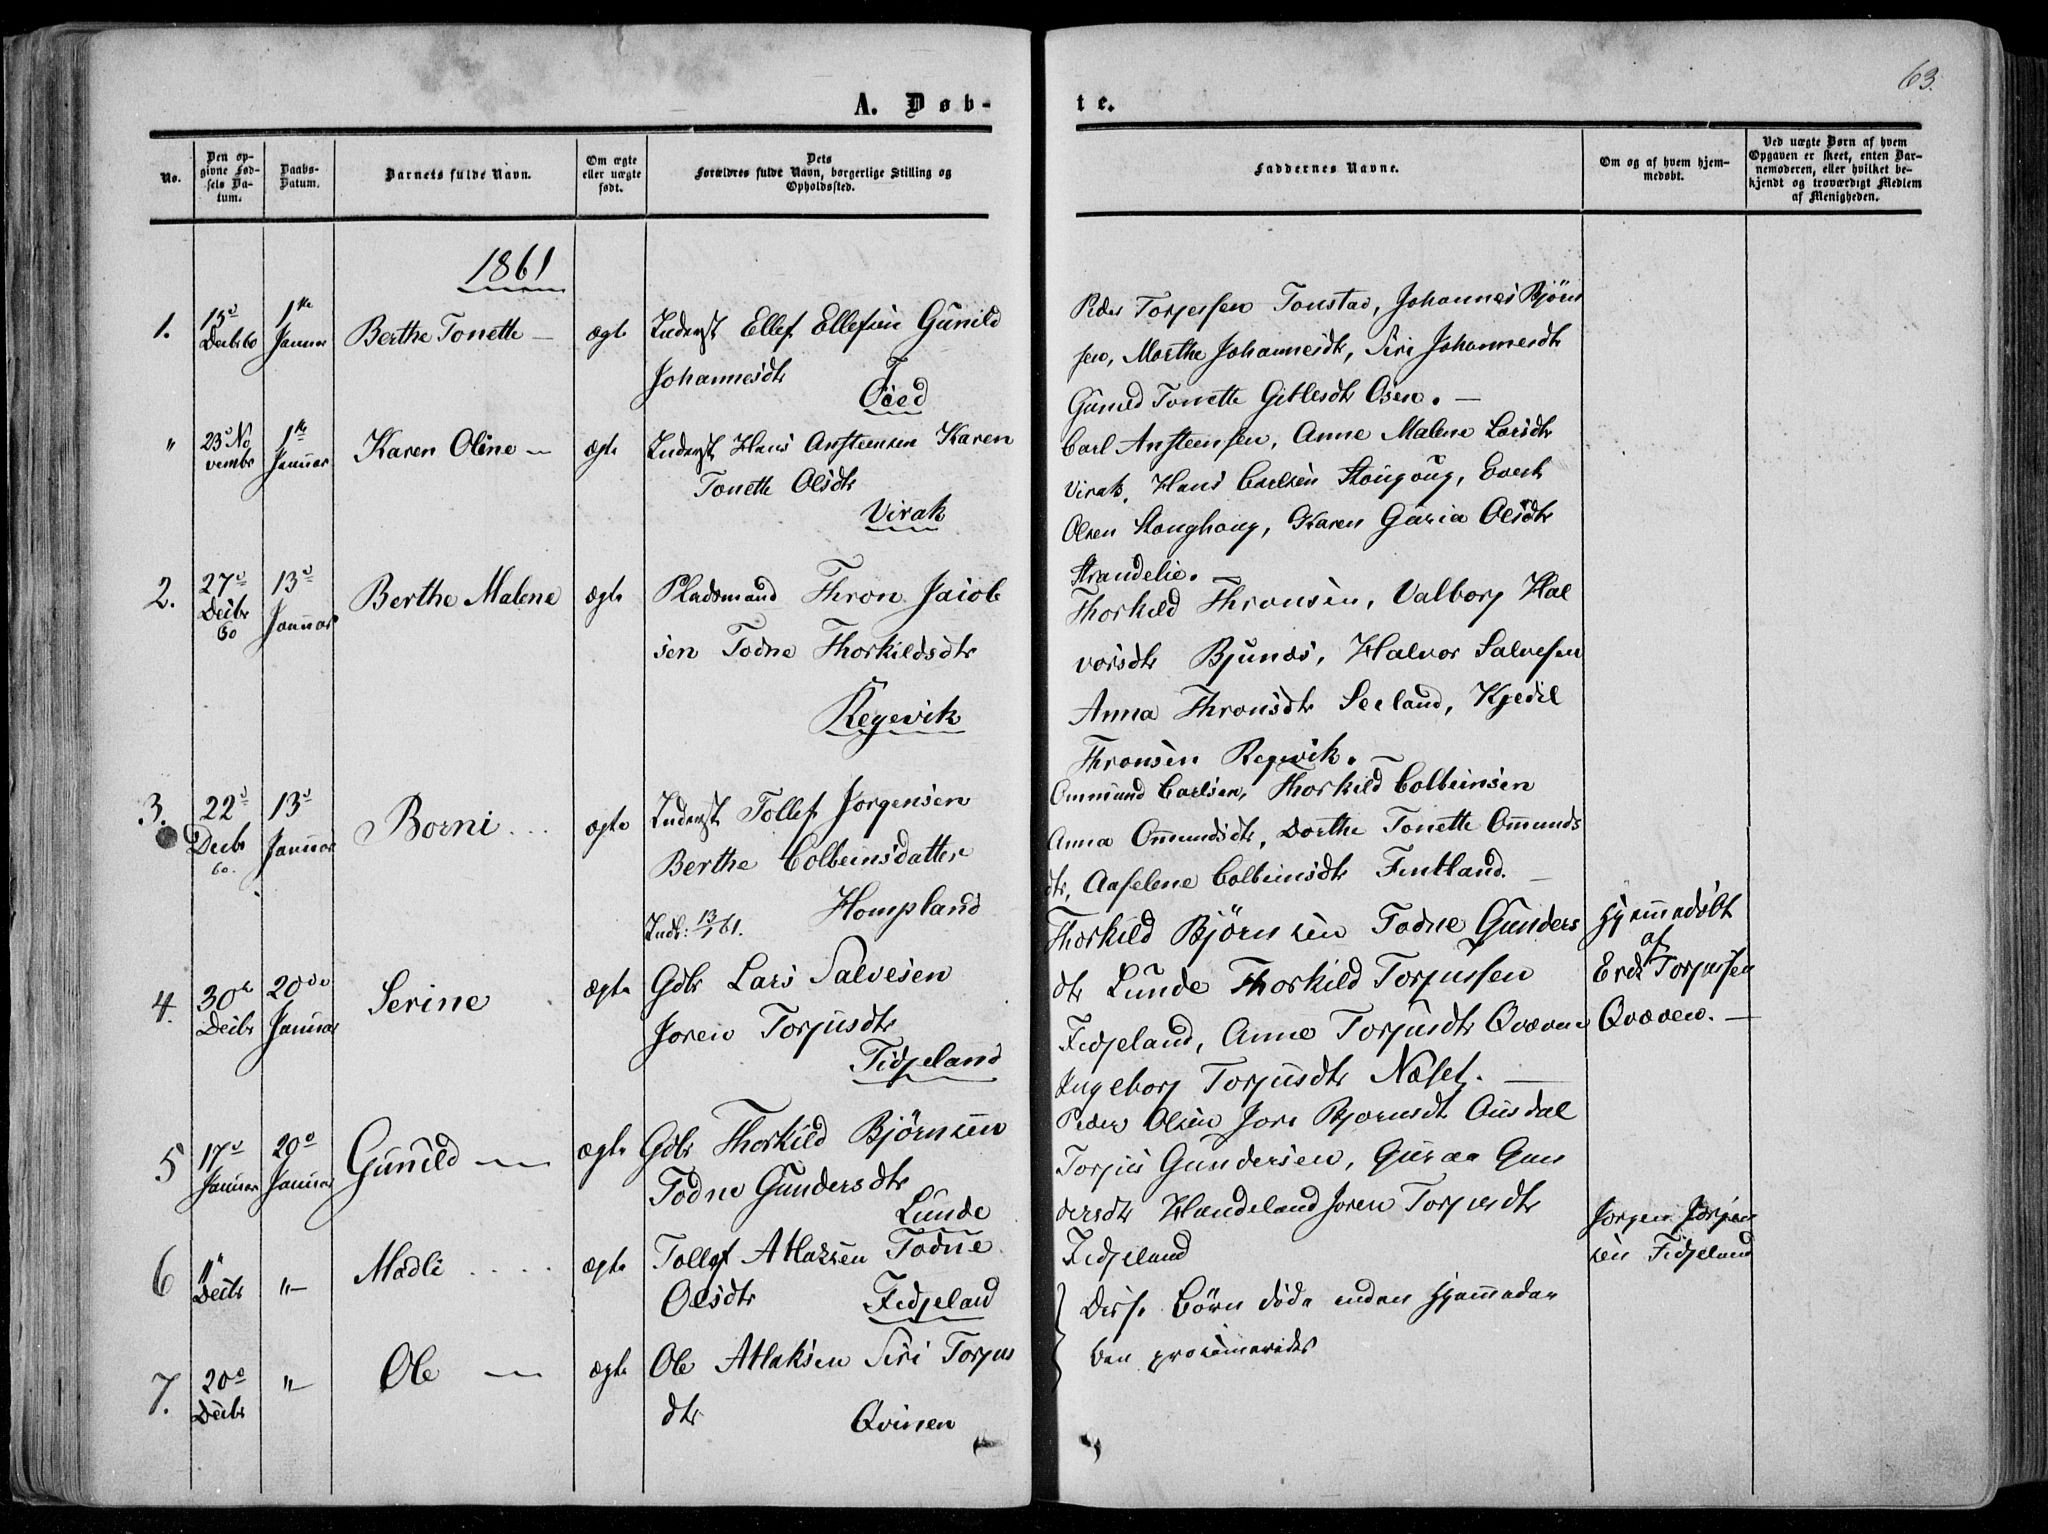 63.
A. Døb-
te.
No.
Den op-
givne Fød-
sels Da-
tum.
Daabs-
Datum.
Barnets fulde Navn.
Om ægte
eller uægte
født.
Dets
Forældres fulde Navn, borgerlige Stilling og
Opholdssted.
Faddernes Navne.
Om og af hvem hjem-
medøbt.
Ved uægte Børn af hvem
Opgaven er skeet, enten Bar-
nemoderen, eller hvilket be-
kjendt og troværdigt Medlem
af Menigheden.
1861
1.
15d
Decbr 60
1ste
Januar
Berthe Tonette —
ægte
Inderst Ellef Ellefsen Gunild
Johannesdtr
Øied
Peder Torjersen Tonstad, Johannes Bjørn
sen, Marthe Johannesdtr, Siri Johannesdtr
Gunild Tonette Gitlesdtr Osen. —
"
23d No
vembr
1ste
Januar
Karen Oline —
ægte
Inderst Hans Anstensen Karen
Tonette Olsdtr
Virak
Carl Anstensen, Anne Malene Larsdtr
Virak, Hans Carlsen, Evert
Olsen Stonghoug, Karen Guria Olsdtr
Strandelie.
2.
27d
Decbr
60
13d
Januar
Berthe Malene
ægte
Pladsmand Thron Jacob
sen Todne Thorkildsdtr
Regevik
Thorkild Thronsen, Valborg Hal
vorsdtr Bjunes, Halvor Salvesen
Anna Thronsdtr Seeland, Kjedil
Thronsen Regevik.
3.
22d
Decbr
60.
13d
Januar
Borni
ægte
Inderst Tollef Jørgensen
Berthe Colbeinsdatter
Hompland
Indb: 13/1 61.
Ommund Carlsen, Thorkild Colbeinsen
Anna Ommundsdtr, Dorthe Tonette Ommunds
dtr, Aaselene Colbeinsdtr Fintland. —
4.
30te
Decbr
20de
Januar
Serine
ægte
Gdbr Lars Salvesen
Joren Torjusdtr
Fidjeland
Thorkild Bjørnsen Todne Gunders
dtr Lunde Thorkild Torjussen
Fidjeland, Anne Torjusdtr Qvæven
Ingeborg Torjusdtr Næset. —
Hjemmedøbt
af
Erik Torjussen
Qvæven. —
5
17d
Januar
20d
Januar
Gunild —
ægte
Gdbr Thorkild Bjørnsen
Todne Gundersdtr
Lunde
Peder Olsen Jore Bjørnsdtr Ousdal
Torjus Gundersen, Guraa Gun
dersdtr Handeland Joren Torjusdtr
Fidjeland
6
"
Decbr
"
Madli
ægte
Tollef Atlaksen Todne
Olsdtr
Fidjeland
Jørgen Jørgen
sen Fidjeland
Disse Børn døde inden Hjemmedaa
ben
7.
20d
Decbr
"
Ole —
ægte
Ole Atlaksen Siri Torjus
dtr
Qvinen